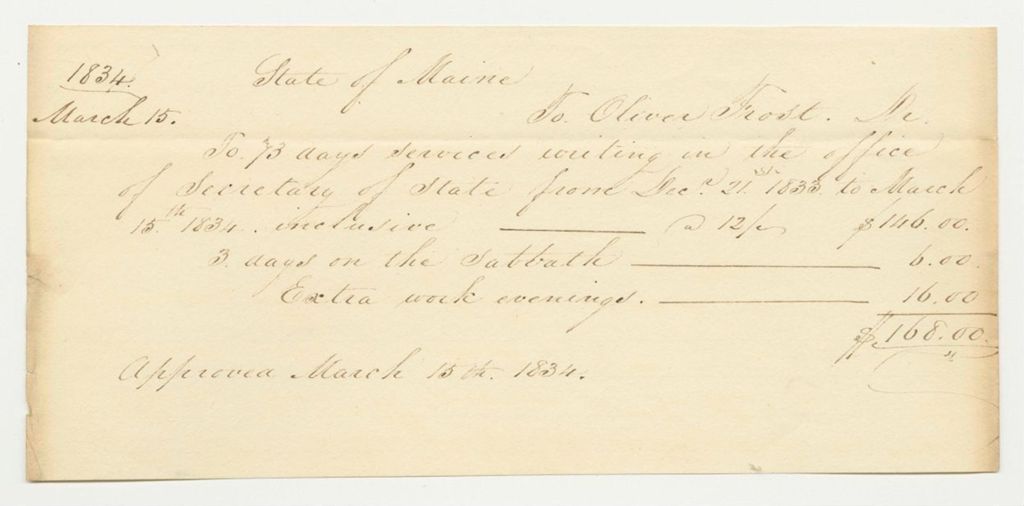 1834. State of Maine
March 15. To Oliver Frost. Dr.
To 73 days services writing in the office
of Secretary of State from Decr. 21st. 1833. to March
15th 1834. inclusive a 12/ $146.00.
3 days on the Sabbath 6.00.
Extra work evenings. 16.00
$168.00.
Approved March 15th. 1834.